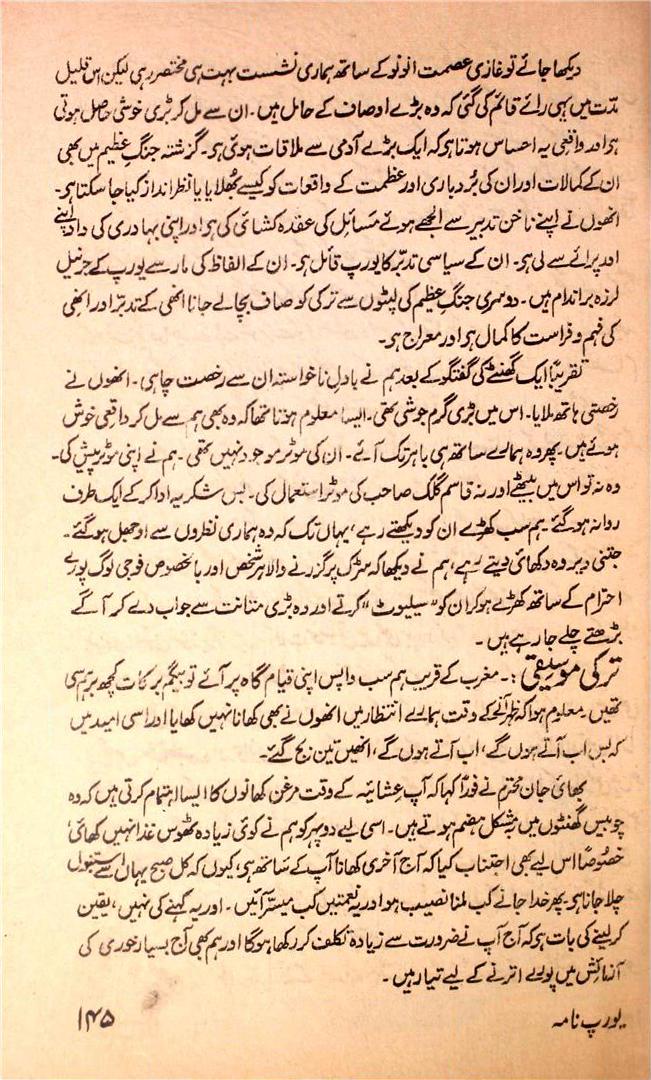 دیکھا جائے تو غازی عصمت انونو کے ساتھ ہماری نشست بہت ہی مختصر رہی لیکن اس قلیل
مدّت میں یہی رائے قائم کی گئی کہ وہ بڑے اوصاف کے حامل ہیں۔ ان سے مل کر بڑی خوشی حاصل ہوتی
ہو اور واقعی یہ احساس ہوتا ہو کہ ایک بڑے آدمی سے ملاقات ہوئی ہو۔ گزشتہ جنگِ عظیم میں بھی
ان کے کمالات اور ان کی بُردباری اور عظمت کے واقعات کو کیسے بُھلایا یا نظر انداز کیا جا سکتا ہو۔
انھوں نے اپنے ناخن تدبیر سے الجھے ہوئے مسائل کی عقدہ کشائی کی ہو اور اپنی بہادری کی داد اپنے
اور پرائے سے لی ہو۔ ان کے سیاسی تدبّر کا یورپ قائل ہو۔ ان کے الفاظ کی مار سے یورپ کے جرنیل
لرزہ براندام ہیں۔ دوسری جنگِ عظیم کی لپٹوں سے ترکی کو صاف بچالے جانا انھی کے تدبّر اور انھی
کی فہم و فراست کا کمال ہو اور معراج ہو۔
تقریباً ایک گھنٹے کی گفتگو کے بعد ہم نے بادلِ ناخواستہ ان سے رخصت چاہی۔ انھوں نے
رخصتی ہاتھ ملایا۔ اس میں بڑی گرم جوشی تھی۔ ایسا معلوم ہوتا تھا کہ وہ بھی ہم سے مل کر واقعی خوش
ہوئے ہیں۔ پھر وہ ہمارے ساتھ ہی باہر تک آئے۔ ان کی موٹر موجود نہیں تھی۔ ہم نے اپنی موٹر پیش کی۔
وہ نہ تو اس میں بیٹھے اور نہ قاسم گلک صاحب کی موٹر استعمال کی۔ بس شکریہ ادا کر کے ایک طرف
روانہ ہو گئے۔ ہم سب کھڑے ان کو دیکھتے رہے، یہاں تک کہ وہ ہماری نظروں سے اوجھل ہو گئے۔
جتنی دیر وہ دکھائی دیتے رہے، ہم نے دیکھا کہ سڑک پر گزرنے والا ہر شخص اور بالخصوص فوجی لوگ پورے
احترام کے ساتھ کھڑے ہو کر ان کو ”سیلیوٹ“ کرتے اور وہ بڑی متانت سے جواب دے کر آگے
بڑھتے چلے جا رہے ہیں۔
ترکی موسیقی :۔ مغرب کے قریب ہم سب واپس اپنی قیام گاہ پر آئے تو بیگم برکات کچھ برہم سی
تھیں۔ معلوم ہوا کہ ظہرانے کے وقت ہمارے انتظار میں انھوں نے بھی کھانا نہیں کھایا اور اسی امید میں
کہ بس اب آتے ہوں گے، اب آتے ہوں گے، انھیں تین بج گئے۔
بھائی جان محترم نے فوراً کہا کہ آپ عشائیہ کے وقت مرغن کھانوں کا ایسا اہتمام کرتی ہیں کہ وہ
چوبیس گھنٹوں میں بہ مشکل ہضم ہوتے ہیں۔ اسی لیے دوپہر کو ہم نے کوئی زیادہ ٹھوس غذا نہیں کھائی
خصوصًا اس لیے بھی اجتناب کیا کہ آج آخری کھانا آپ کے ساتھ ہو؛ کیوں کہ کل صبح یہاں سے استنبول
چلا جانا ہو۔ پھر خدا جانے کب ملنا نصیب ہو اور یہ نعمتیں کب میسّر آئیں۔ اور یہ کہنے کی نہیں، یقین
کر لینے کی بات ہو کہ آج آپ نے ضرورت سے زیادہ تکلف کر رکھا ہوگا اور ہم بھی آج بسیار خوری کی
آزمائش میں پورے اترنے کے لیے تیار ہیں۔
یورپ نامہ ۱۴۵